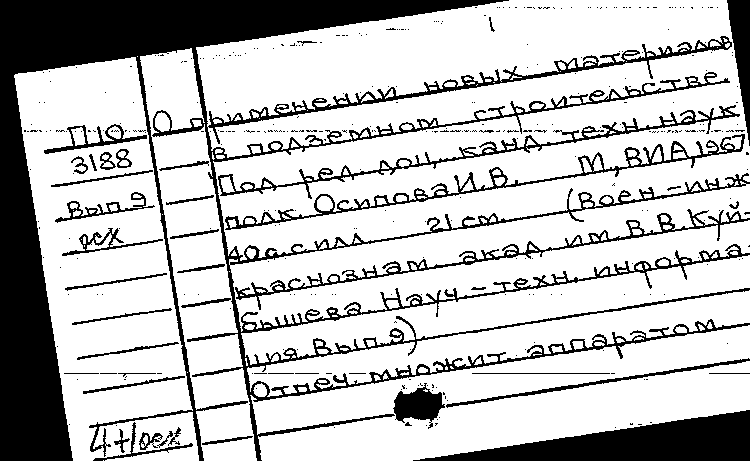 О применении новых материалов
П10 в подземном строительстве.
3188 Под ред. доц. канд. техн. наук
Вып.9 полк. Осипова И.В. М., ВИА, 1967.
осх 40 с. с илл. 21 см. (Воен-инж
краснознам. акад. им. В.В. Куй-
бышева. Науч.-техн. информа-
ция. Вып. 9)
Отпеч. множит. аппаратом.
4+1осх